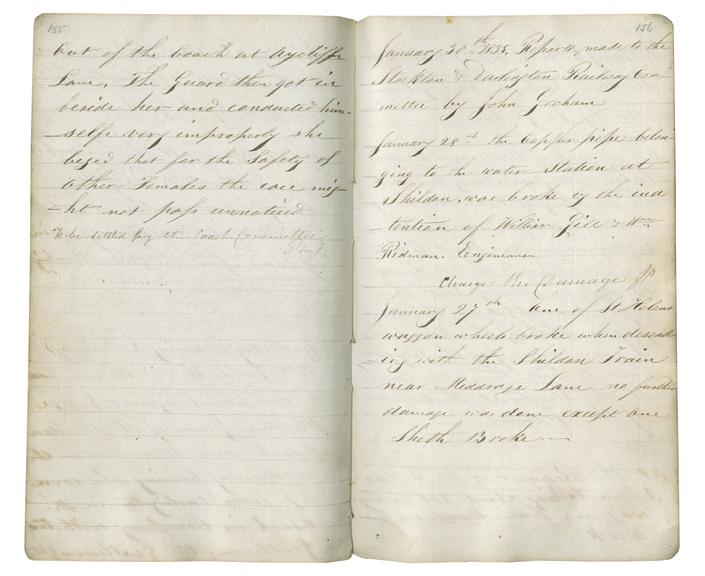 155
out of the Coach at Aycliffe
Lane. The Guard then got in
beside her and conducted him-
-self very improperly she
beged that for the Safety of
other Females the case mig-
-ht not pass unnoticed
To be settled by the Coach Committee
156
January 30th 1835, Reports made to the
Stockton & Darlington Railway Com-
mittee by John Graham
January 28th the Copper pipe belon-
-ging to the water Station at
Shildon was broke by the ina
-tention of William Gill & Wm
Ridman. Enginemen
Charge the Damage
January 27th one of St Helens
waggon wheels broke when desend-
-ing with the Shildon Train
near Middrage Lane no further
damage was done except one
Sheth Broke